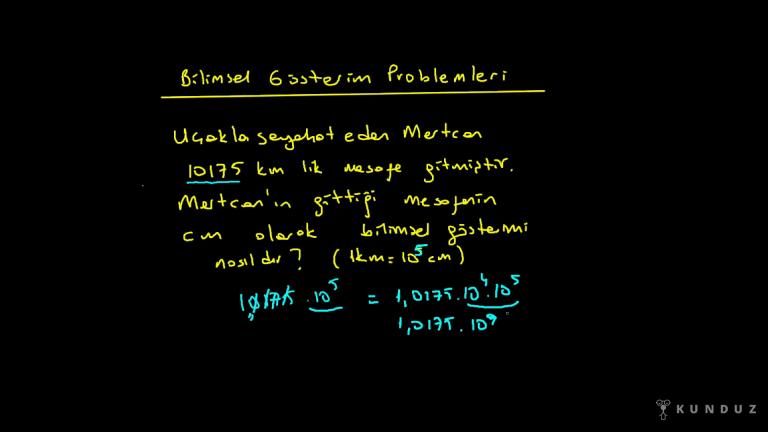 Bilimsel Gösterim Problemleri
Uçakla seyahat eden Mertcan
10175 km lik mesafe gitmiştir.
Mertcan'ın gittiği mesafenin
cm olarak bilimsel gösterimi
nasıldır? (1km = 10⁵ cm)
10175 . 10⁵ = 1,0175 . 10⁴ . 10⁵
1,0175 . 10⁹
KUNDUZ